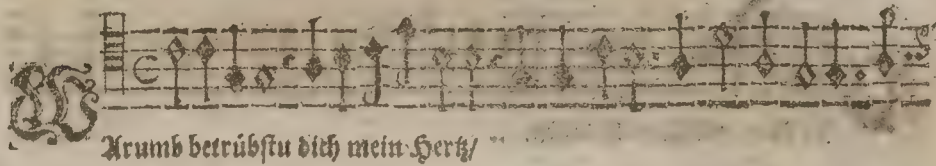 WArumb betrübstu dich mein Hertz/